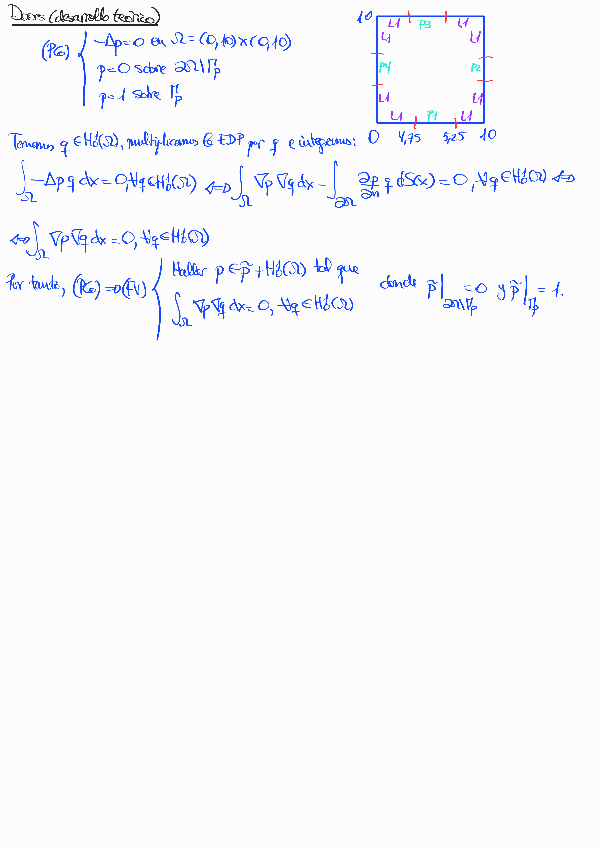 Doors (desarrollo teórico)
(PG) { -Δp=0 en Ω=(0,10)×(0,10)
p=0 sobre ∂Ω\Γp
p=1 sobre Γp
10 L1 P3 L1
L1 L1
P4 P2
L1 L1
L1 P1 L1
0 4,75 5,25 10
Tomamos q∈H¹₀(Ω), multiplicamos la EDP por q e integramos:
∫_Ω -Δp q dx = 0, ∀q∈H¹₀(Ω) ⇔ ∫_Ω ∇p ∇q dx - ∫_∂Ω ∂p/∂n q dS(x) = 0, ∀q∈H¹₀(Ω) ⇔
⇔ ∫_Ω ∇p ∇q dx = 0, ∀q∈H¹₀(Ω)
Por tanto, (PG) ⇒ (FV) { Hallar p∈p̃+H¹₀(Ω) tal que
∫_Ω ∇p ∇q dx = 0, ∀q∈H¹₀(Ω)
donde p̃|_∂Ω\Γp = 0 y p̃|_Γp = 1.